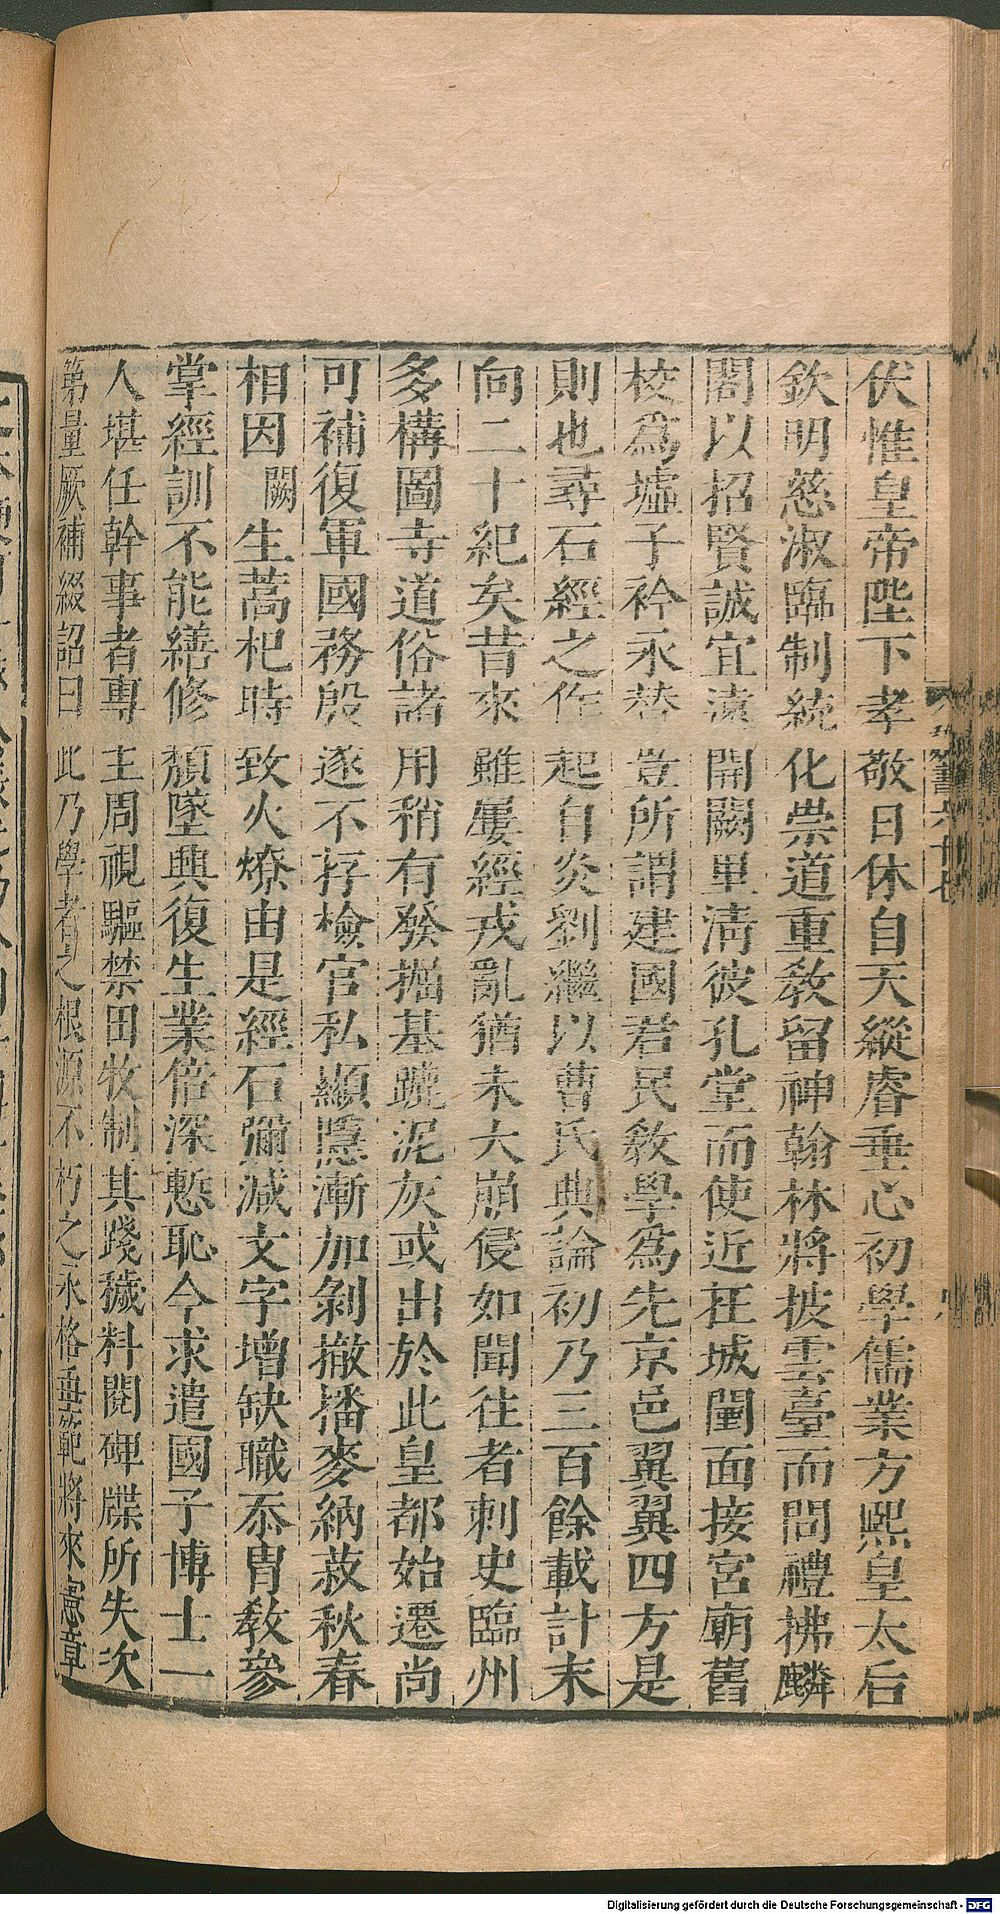 伏惟皇帝陛下孝敬日休自天縱睿垂心初學儒業方熈皇太后
欽明慈淑臨制統化崇道重敎留神翰林將披雲臺而問禮拂麟
閣以招賢誠宜遠開闕里清彼孔堂而使近在城闉面接宮廟舊
校為墟子衿永替豈所謂建國君民敎學為先京邑翼翼四方是
則也尋石經之作起自炎劉繼以曹氏典論初乃三百餘載計末
向二十紀矣昔來雖屢經戎亂猶未大崩侵如聞往者刺史臨州
多構圖寺道俗諸用稍有發掘基蹠泥灰或出於此皇都始遷尚
可補復軍國務殷遂不存檢官私顯隱漸加剝撤播麥納菽秋春
相因闕生蒿杞時致火燎由是經石彌減文字增缺職忝胄敎參
掌經訓不能繕修頹墜興復生業倍深慙恥今求遣國子博士一
人堪任幹事者專主周視驅禁田牧制其踐穢料閱碑牒所失次
第量厥補綴詔曰此乃學者之根源不朽之永格垂範將來憲章
Digitalisierung gefördert durch die Deutsche Forschungsgemeinschaft - DFG